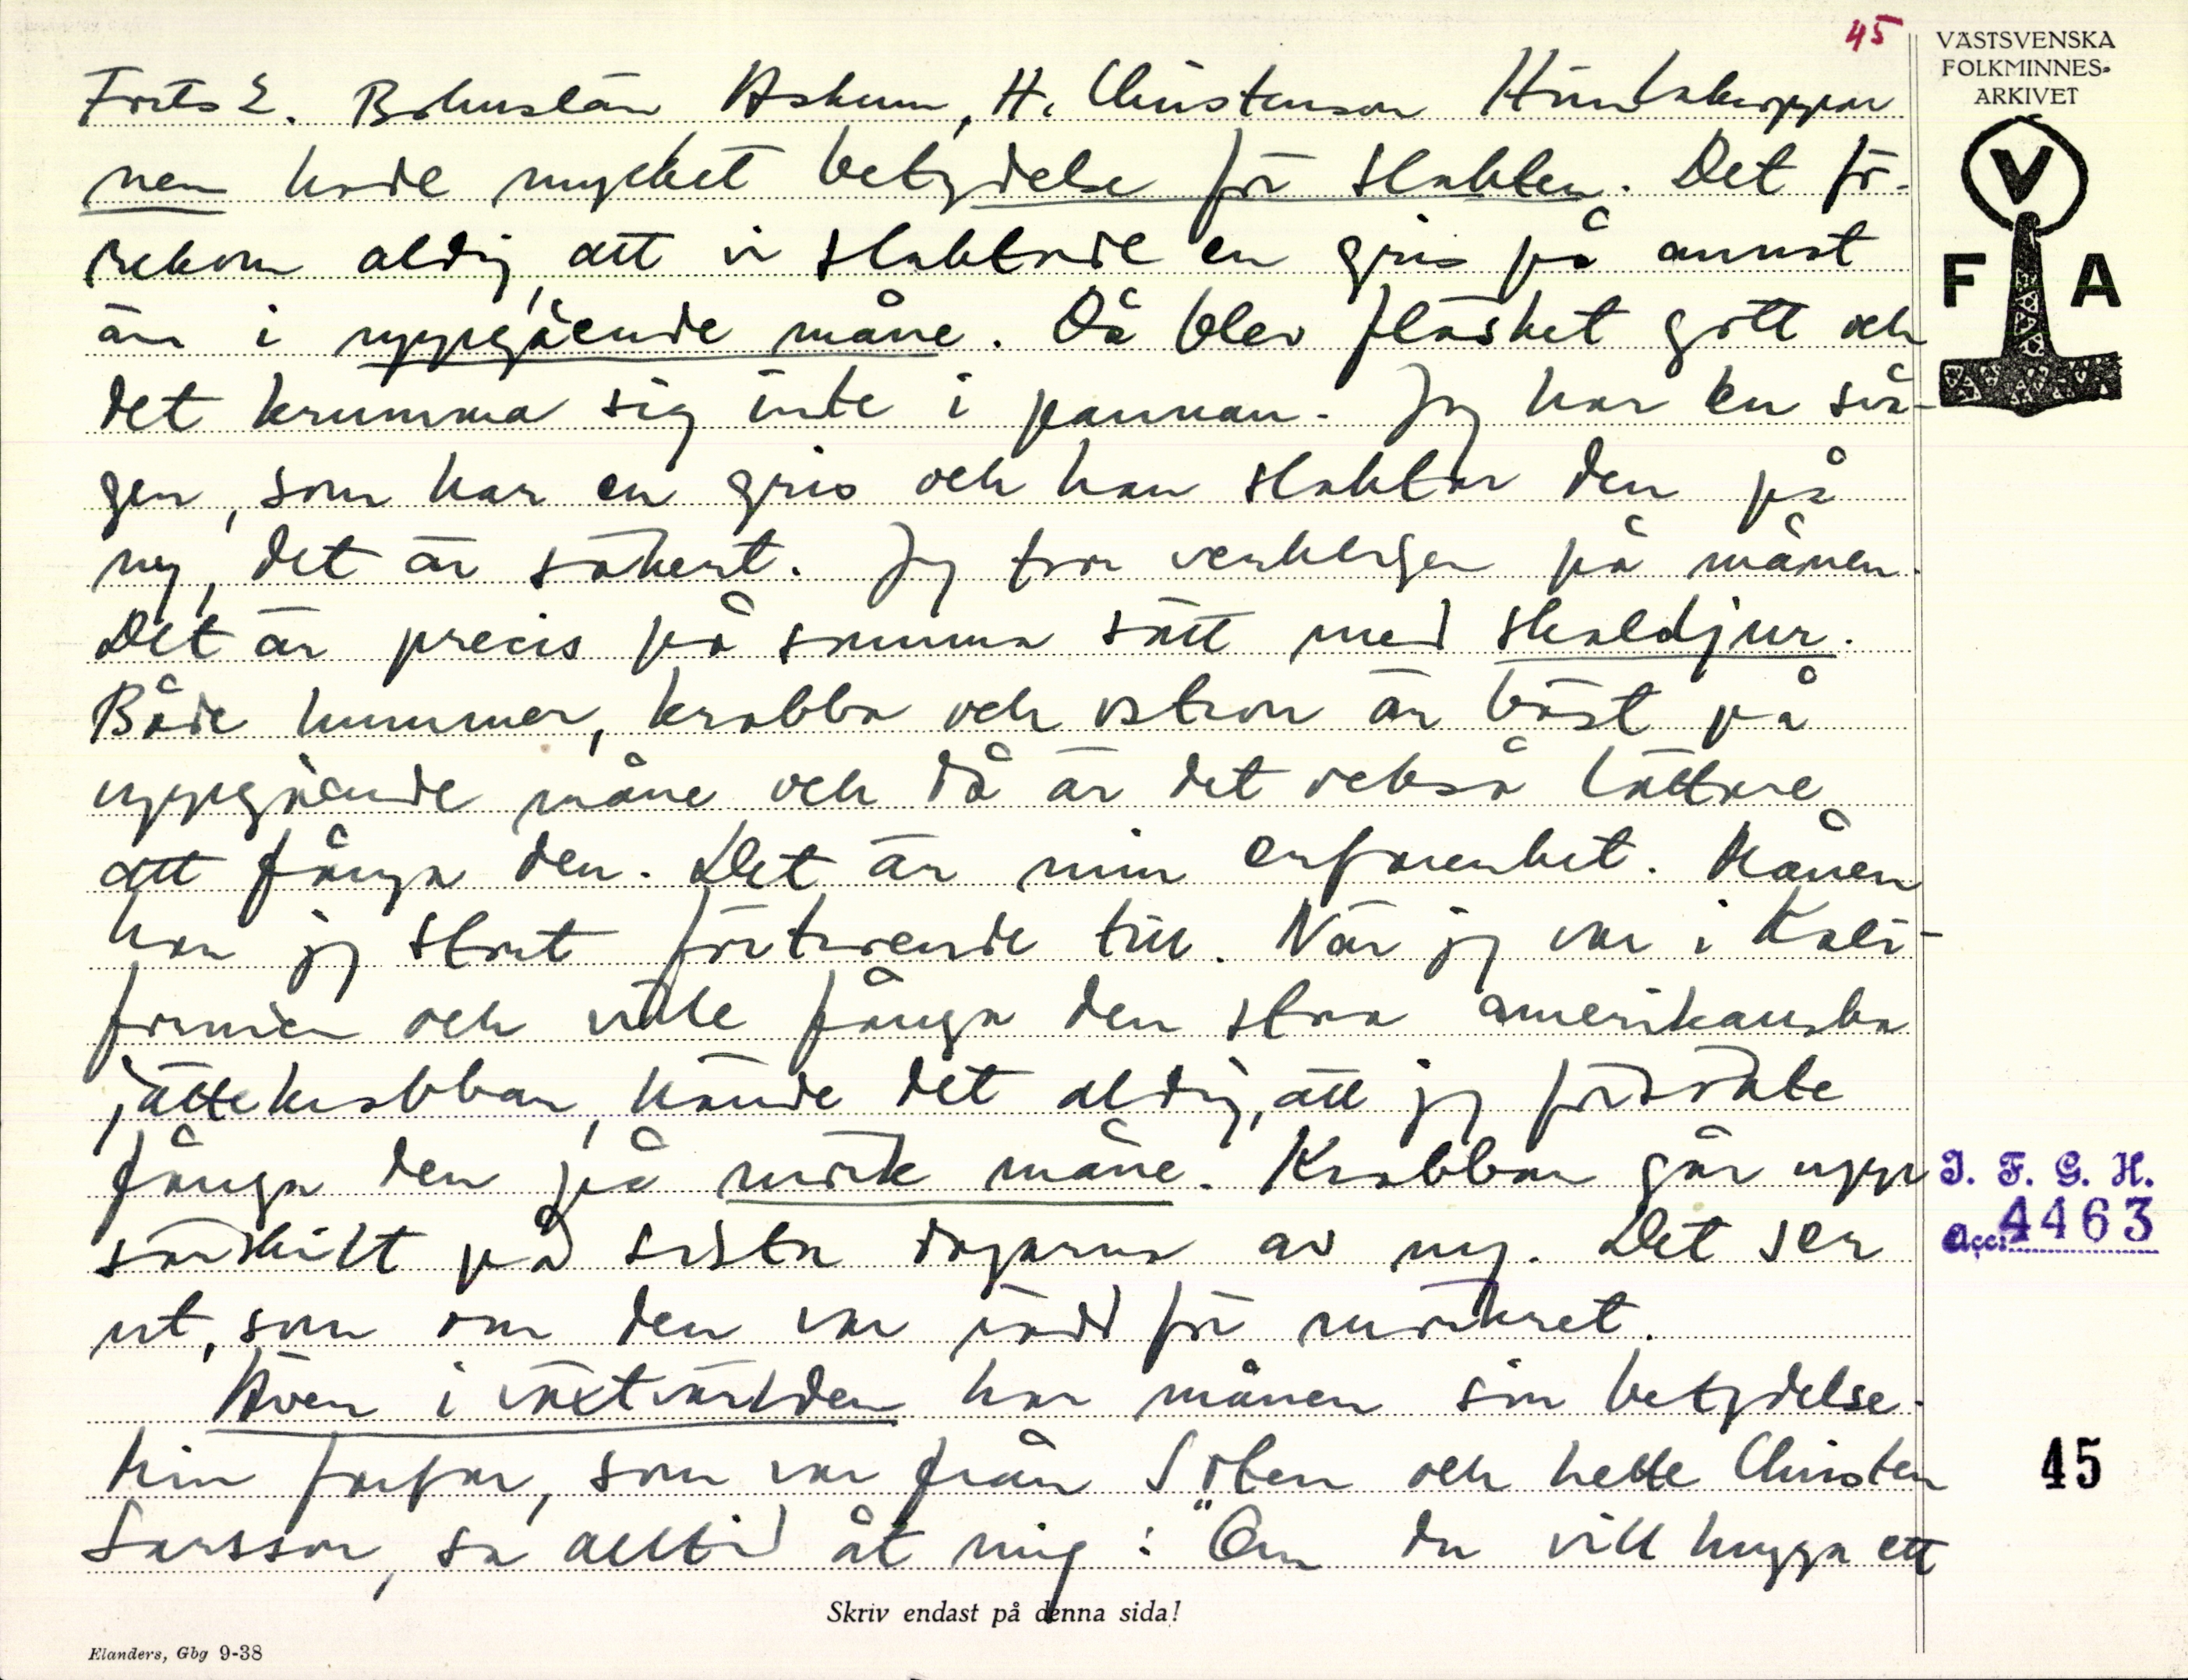 45
VÄSTSVENSKA
FOLKMINNES-
ARKIVET
V
F A
Forts 2. Bohuslän Askum, H. Christenson
nen hade mycket betydelse för slakten. Det fö-
rekom aldrig, att vi slaktade en gris på annat
än i uppgående måne. Då blev fläsket gott och
det krumma sig inte i pannan. Jag har en svå-
ger, som har en gris och han slaktar den på
ny, det är säkert. Jag tror verkligen på månen.
Det är precis på samma sätt med skaldjur.
Både hummer, krabba och ostron är bäst på
uppgående måne och då är det också lättare
att fånga den. Det är min erfarenhet. Månen
har jag stort förtroende till. När jag var i Kali-
fornien och ville fånga den stora amerikanska
jättekrabban, hände det aldrig, att jag försökte
fånga den på mörk måne. Krabban går upp
särskilt på sista dagarna av ny. Det ser
ut, som om den var rädd för mörkret.
Även i växtvärlden har månen sin betydelse.
Min farfar, som var från och hette Christen
Larsson, sa alltid åt mig: "Om du vill hugga ett
I. F. G. H.
Acc. 4463
45
Skriv endast på denna sida!
Elanders, Gbg 9-38